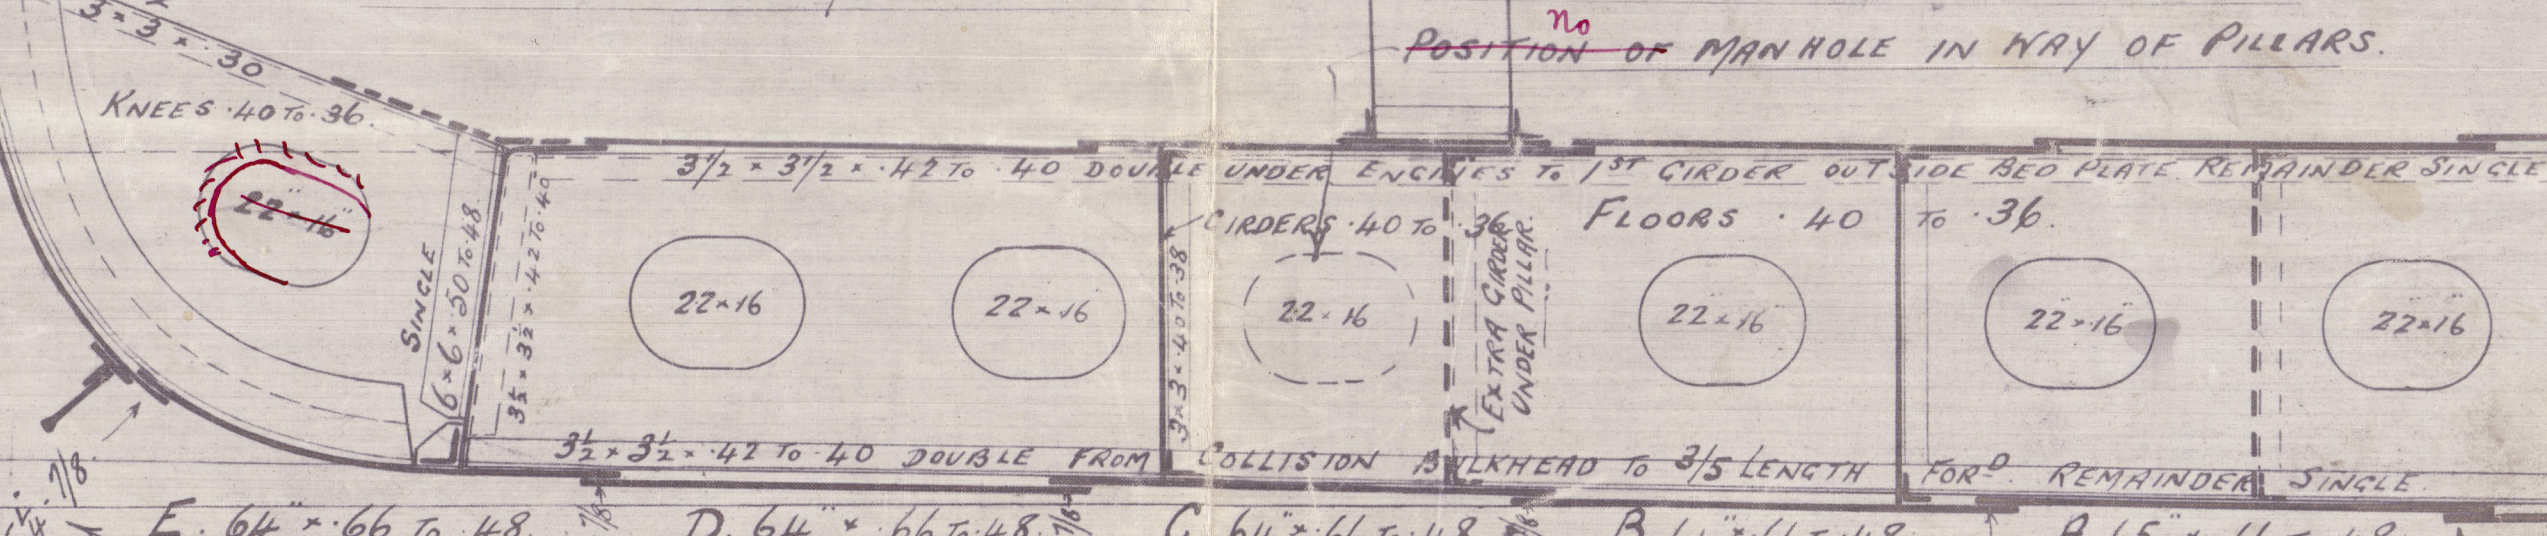 no
POSITION OF MANHOLE IN WAY OF PILLARS.
3 × 3 × .30
KNEES .40 TO .36.
22" × 16"
SINGLE
6 × 6 × .50 TO .48.
3½ × 3½ × .42 TO .40
3½ × 3½ × .42 TO .40 DOUBLE UNDER ENGINES TO 1ST GIRDER OUTSIDE BED PLATE REMAINDER SINGLE
GIRDERS .40 TO .36
FLOORS .40 TO .36.
22 × 16
22 × 16
3 × 3 × .40 TO .38
22 × 16
EXTRA GIRDER
UNDER PILLAR.
22" × 16"
22" × 16"
22" × 16"
3½ × 3½ × .42 TO .40 DOUBLE FROM COLLISION BULKHEAD TO 3/5 LENGTH FORD. REMAINDER SINGLE.
7/8
7/8
7/8
7/8
E. 64" × .66 TO .48.
D. 64" × .66 TO .48.
C. 64" × .66 TO .48